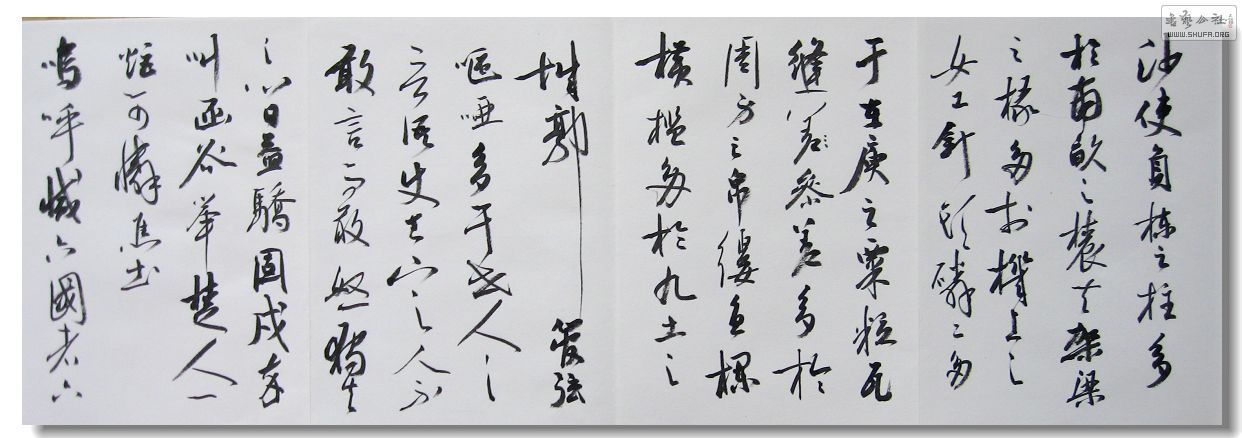 沙使負棟之柱多
於南畝之農夫架梁
之椽多於機上之
女工針頭磷磷多
于在庾之粟粒瓦
縫差參差多於
周身之帛縷直欄
橫檻多於九土之
城郭 管弦
嘔啞多于市人之
言語使天下之人不
敢言而敢怒獨夫
之心日益驕固戍卒
叫函谷舉楚人一
炬可憐焦土
嗚呼滅六國者六
書藝公社
WWW.SHUFA.ORG